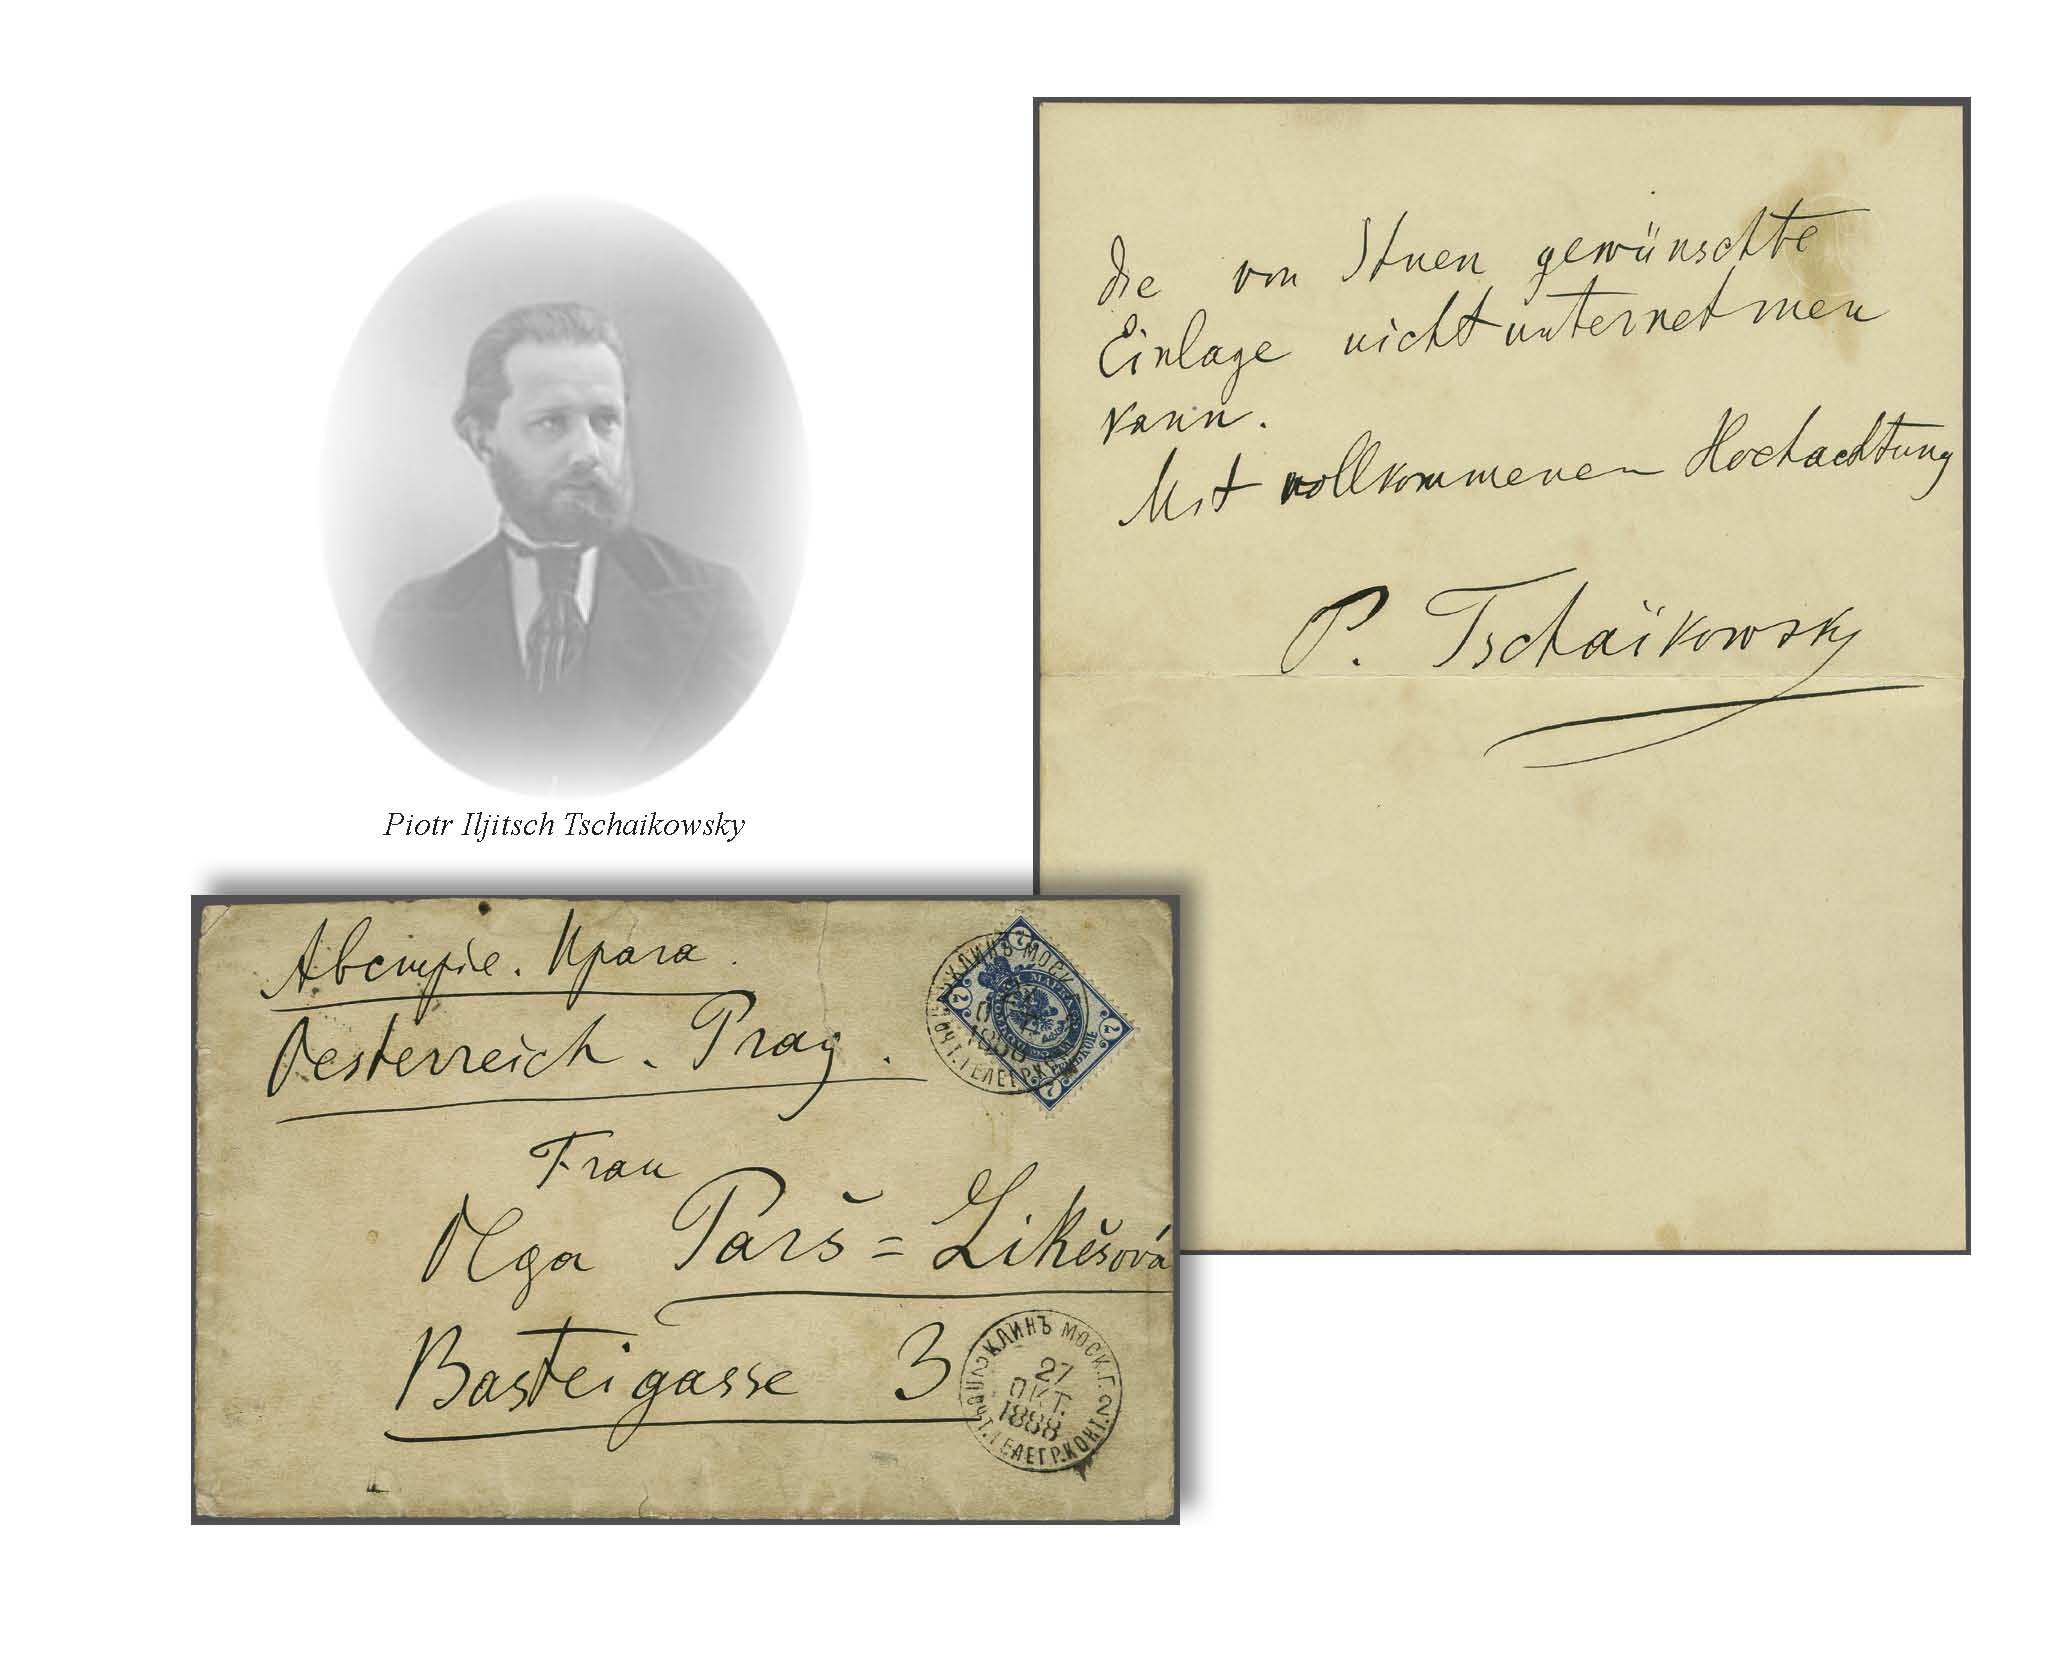 die von Ihnen gewünschte
Einlage nicht unternehmen
kann.
Mit vollkommenen Hochachtung
P. Tschaïkowsky
Piotr Iljitsch Tschaikowsky
Австрiе. Прага.
Oesterreich. Prag.
Frau
Olga Parš=Likěšová
Basteigasse 3
КЛИНЪ МОСК.
1888
ПОЧТ.ТЕЛЕГР.К
7
7
7
7
МАРКА
КЛИНЪ МОСК.Г. 2
27
ОКТ.
1888
ПОЧТ.ТЕЛЕГР.КОНТ.